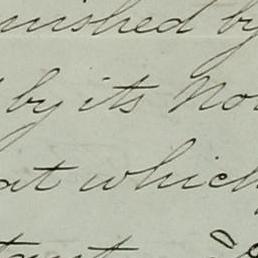 nished by
by its No
at which